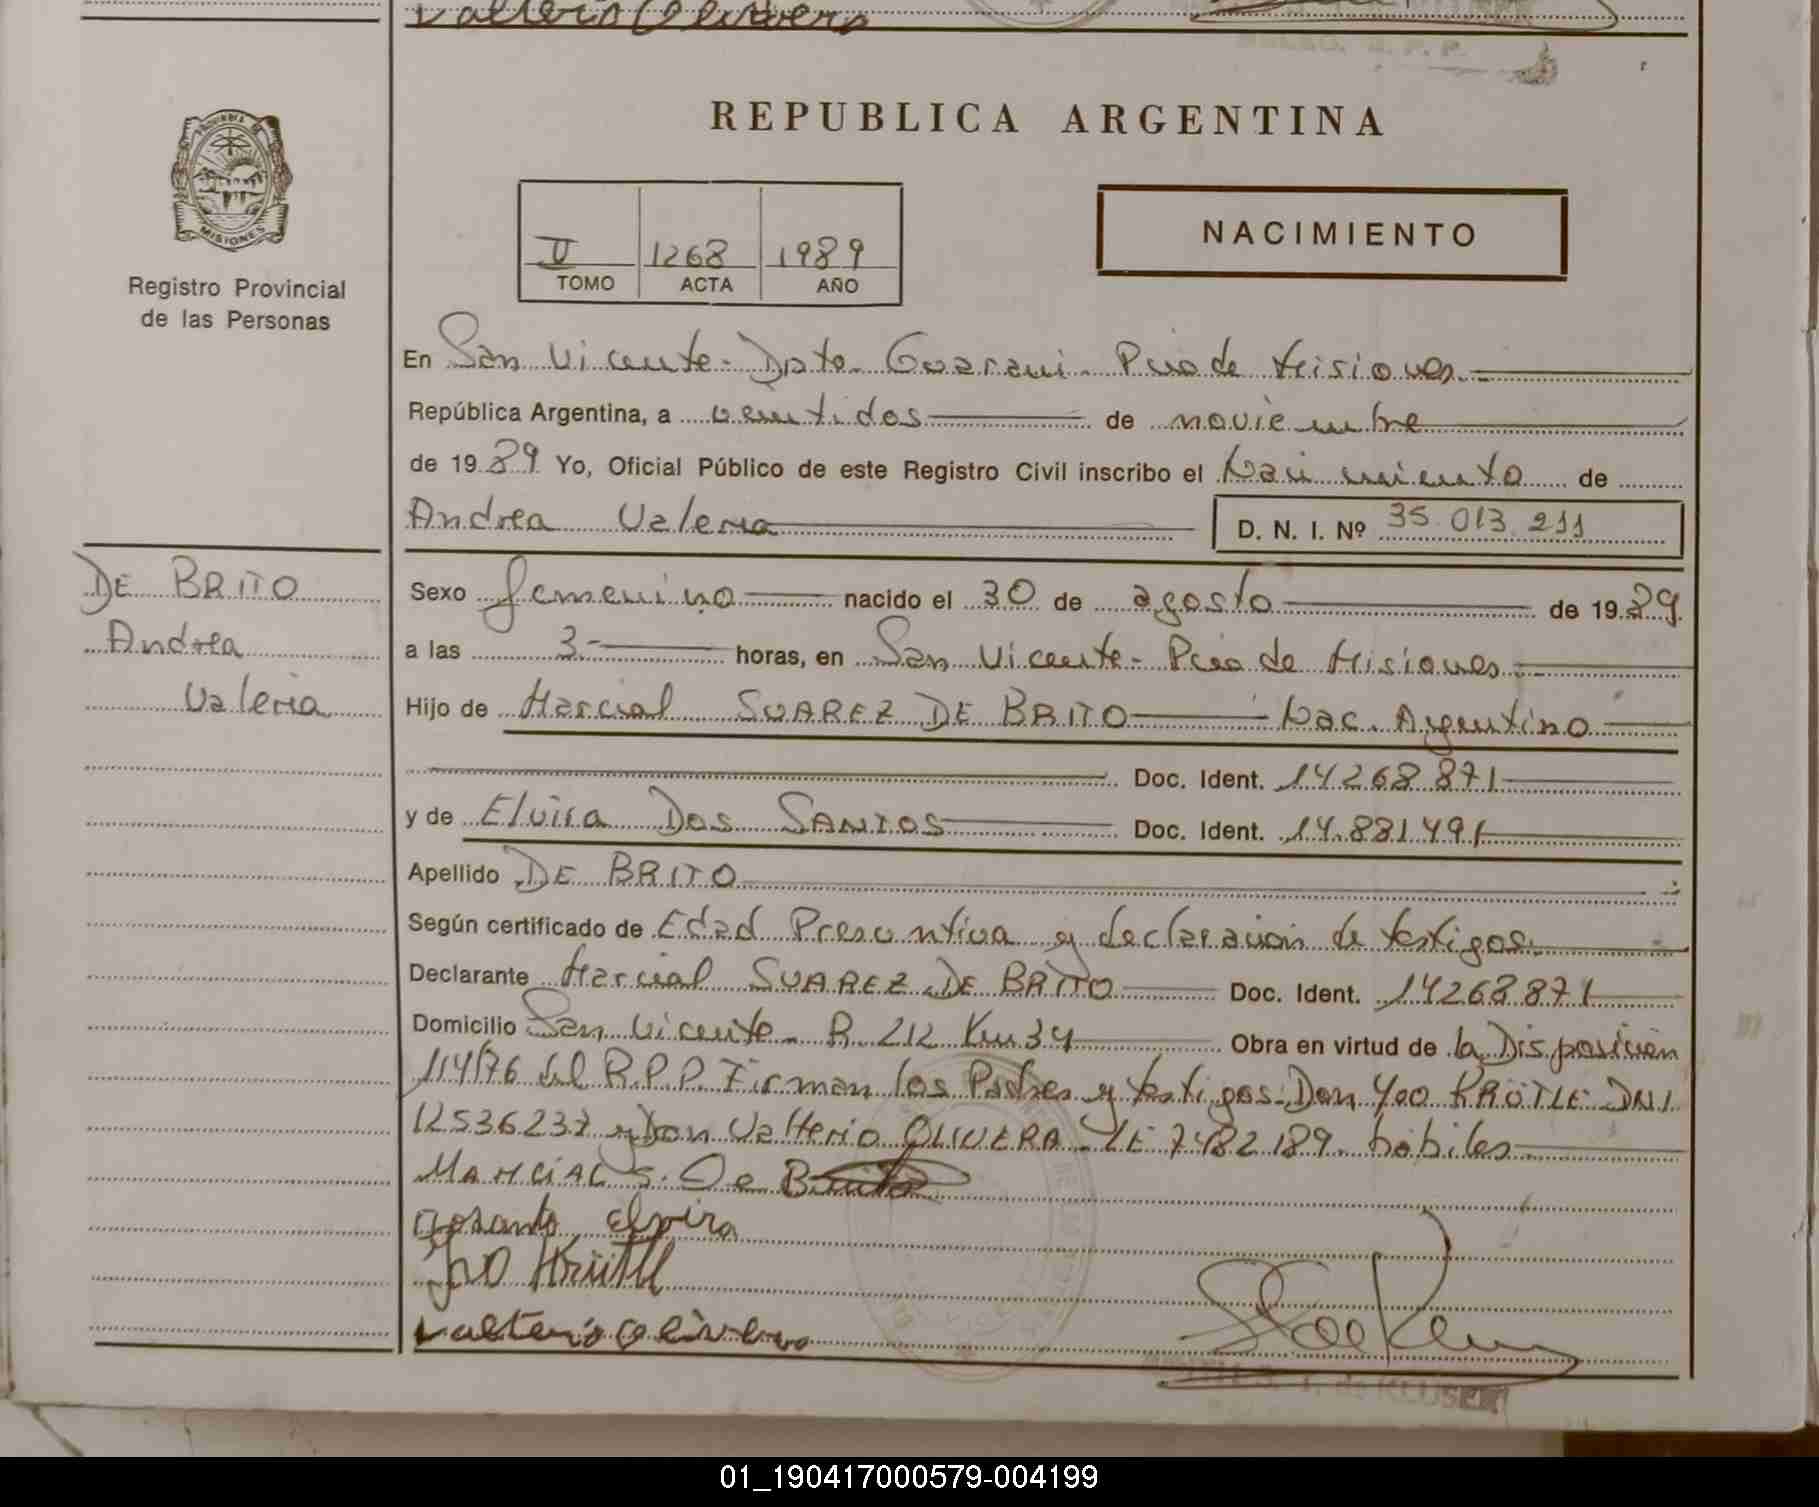 Valterio Olivera
REPUBLICA ARGENTINA
PROVINCIA DE
MISIONES
Registro Provincial
de las Personas
II 1268 1989
TOMO ACTA AÑO
NACIMIENTO
En San Vicente - Dpto. Guarani - Pcia de Misiones.-
República Argentina, a veintidos de noviembre
de 1989 Yo, Oficial Público de este Registro Civil inscribo el Nacimiento de
Andrea Valeria D. N. I. Nº 35.013.211
DE BRITO
Andrea
Valeria
Sexo femenino nacido el 30 de agosto de 1989.
a las 3.- horas, en San Vicente - Pcia de Misiones.-
Hijo de Marcial SUAREZ DE BRITO Nac. Argentino
Doc. Ident. 14268.871
y de Elvira DOS SANTOS Doc. Ident. 14.881.491
Apellido DE BRITO
Según certificado de Edad Presuntiva y declaración de testigos.
Declarante Marcial SUAREZ DE BRITO Doc. Ident. 14268871
Domicilio San Vicente - R. 212 Km 34 Obra en virtud de la Disposición
114/76 del R.P.P. Firman los Padres y testigos: Don YOO KRÜTLE DNI
12536237 y Don Valterio OLIVERA - LE 7482189 hábiles
MARCIAL S. De Brito
dosanto elvira
Valterio Olivera
01_190417000579-004199